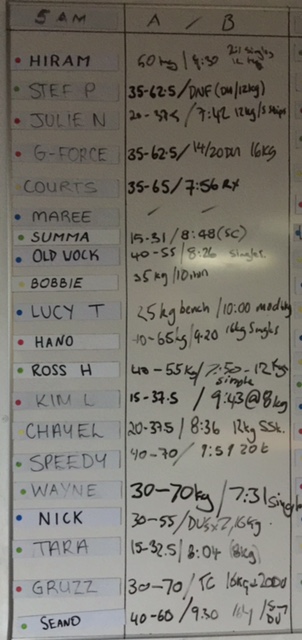 5 AM A / B
HIRAM 50kg / 9:30 singles
STEF P 35-62.5/DNF (DU/12kg)
JULIE N 20-37.5 /7:42 12kg/s steps
G-FORCE 35-62.5/14/20DU 16KG
COURTS 35-65/7:56 RX
MAREE
SUMMA 15-31/8:48(SC)
OLD VOCK 40-55/8:26 singles
BOBBIE 35kg/10min
LUCY T 25kg bench/10:00
HANO 10-65kg/9:20 16kg Singles
ROSS H 40-55kg/7:50-12kgs
single
KIM L 15-37.5 / 9:43@8kg
CHAYEL 20-37.5/8:36 12kg
SPEEDY 40-70/
WAYNE 30-70kg/7:31 single
NICK 30-55/DUsx2/16kg
TARA 15-32.5/8:04 (8kg)
GRUZZ 30-70/TC 16kg+20DU
SEANO 40-60/9:30